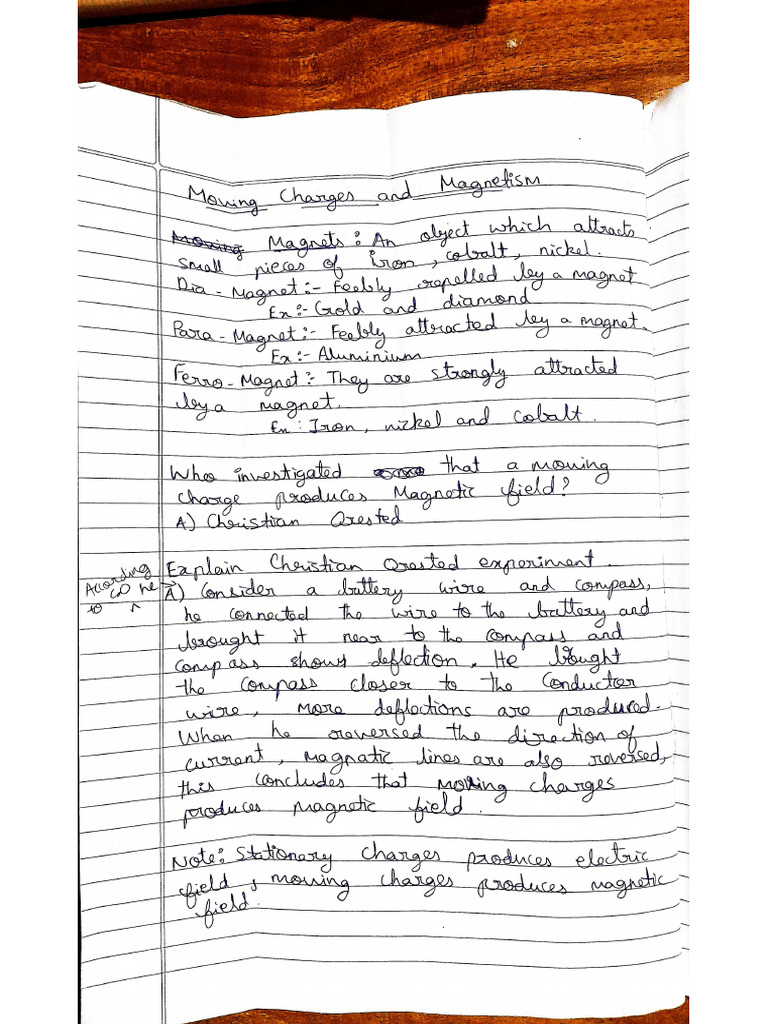 Moving Charges and Magnetism
Magnets: An object which attracts
small pieces of iron, cobalt, nickel.
Dia-Magnet:- Feebly repelled by a magnet
Ex:- Gold and diamond
Para-Magnet:- Feebly attracted by a magnet.
Ex:- Aluminium
Ferro-Magnet:- They are strongly attracted
by a magnet.
Ex: Iron, nickel and cobalt.
Who investigated that a moving
charge produces Magnetic field?
A) Christian Orested
Explain Christian Orested experiment.
According
to
A) Consider a battery wire and compass,
he connected the wire to the battery and
brought it near to the compass and
compass shows deflection. He bought
the compass closer to the conductor
wire, more deflections are produced.
When he reversed the direction of
current, magnatic lines are also reversed,
this concludes that moving charges
produces magnetic field.
Note: Stationary charges produces electric
field, moving charges produces magnetic
field.